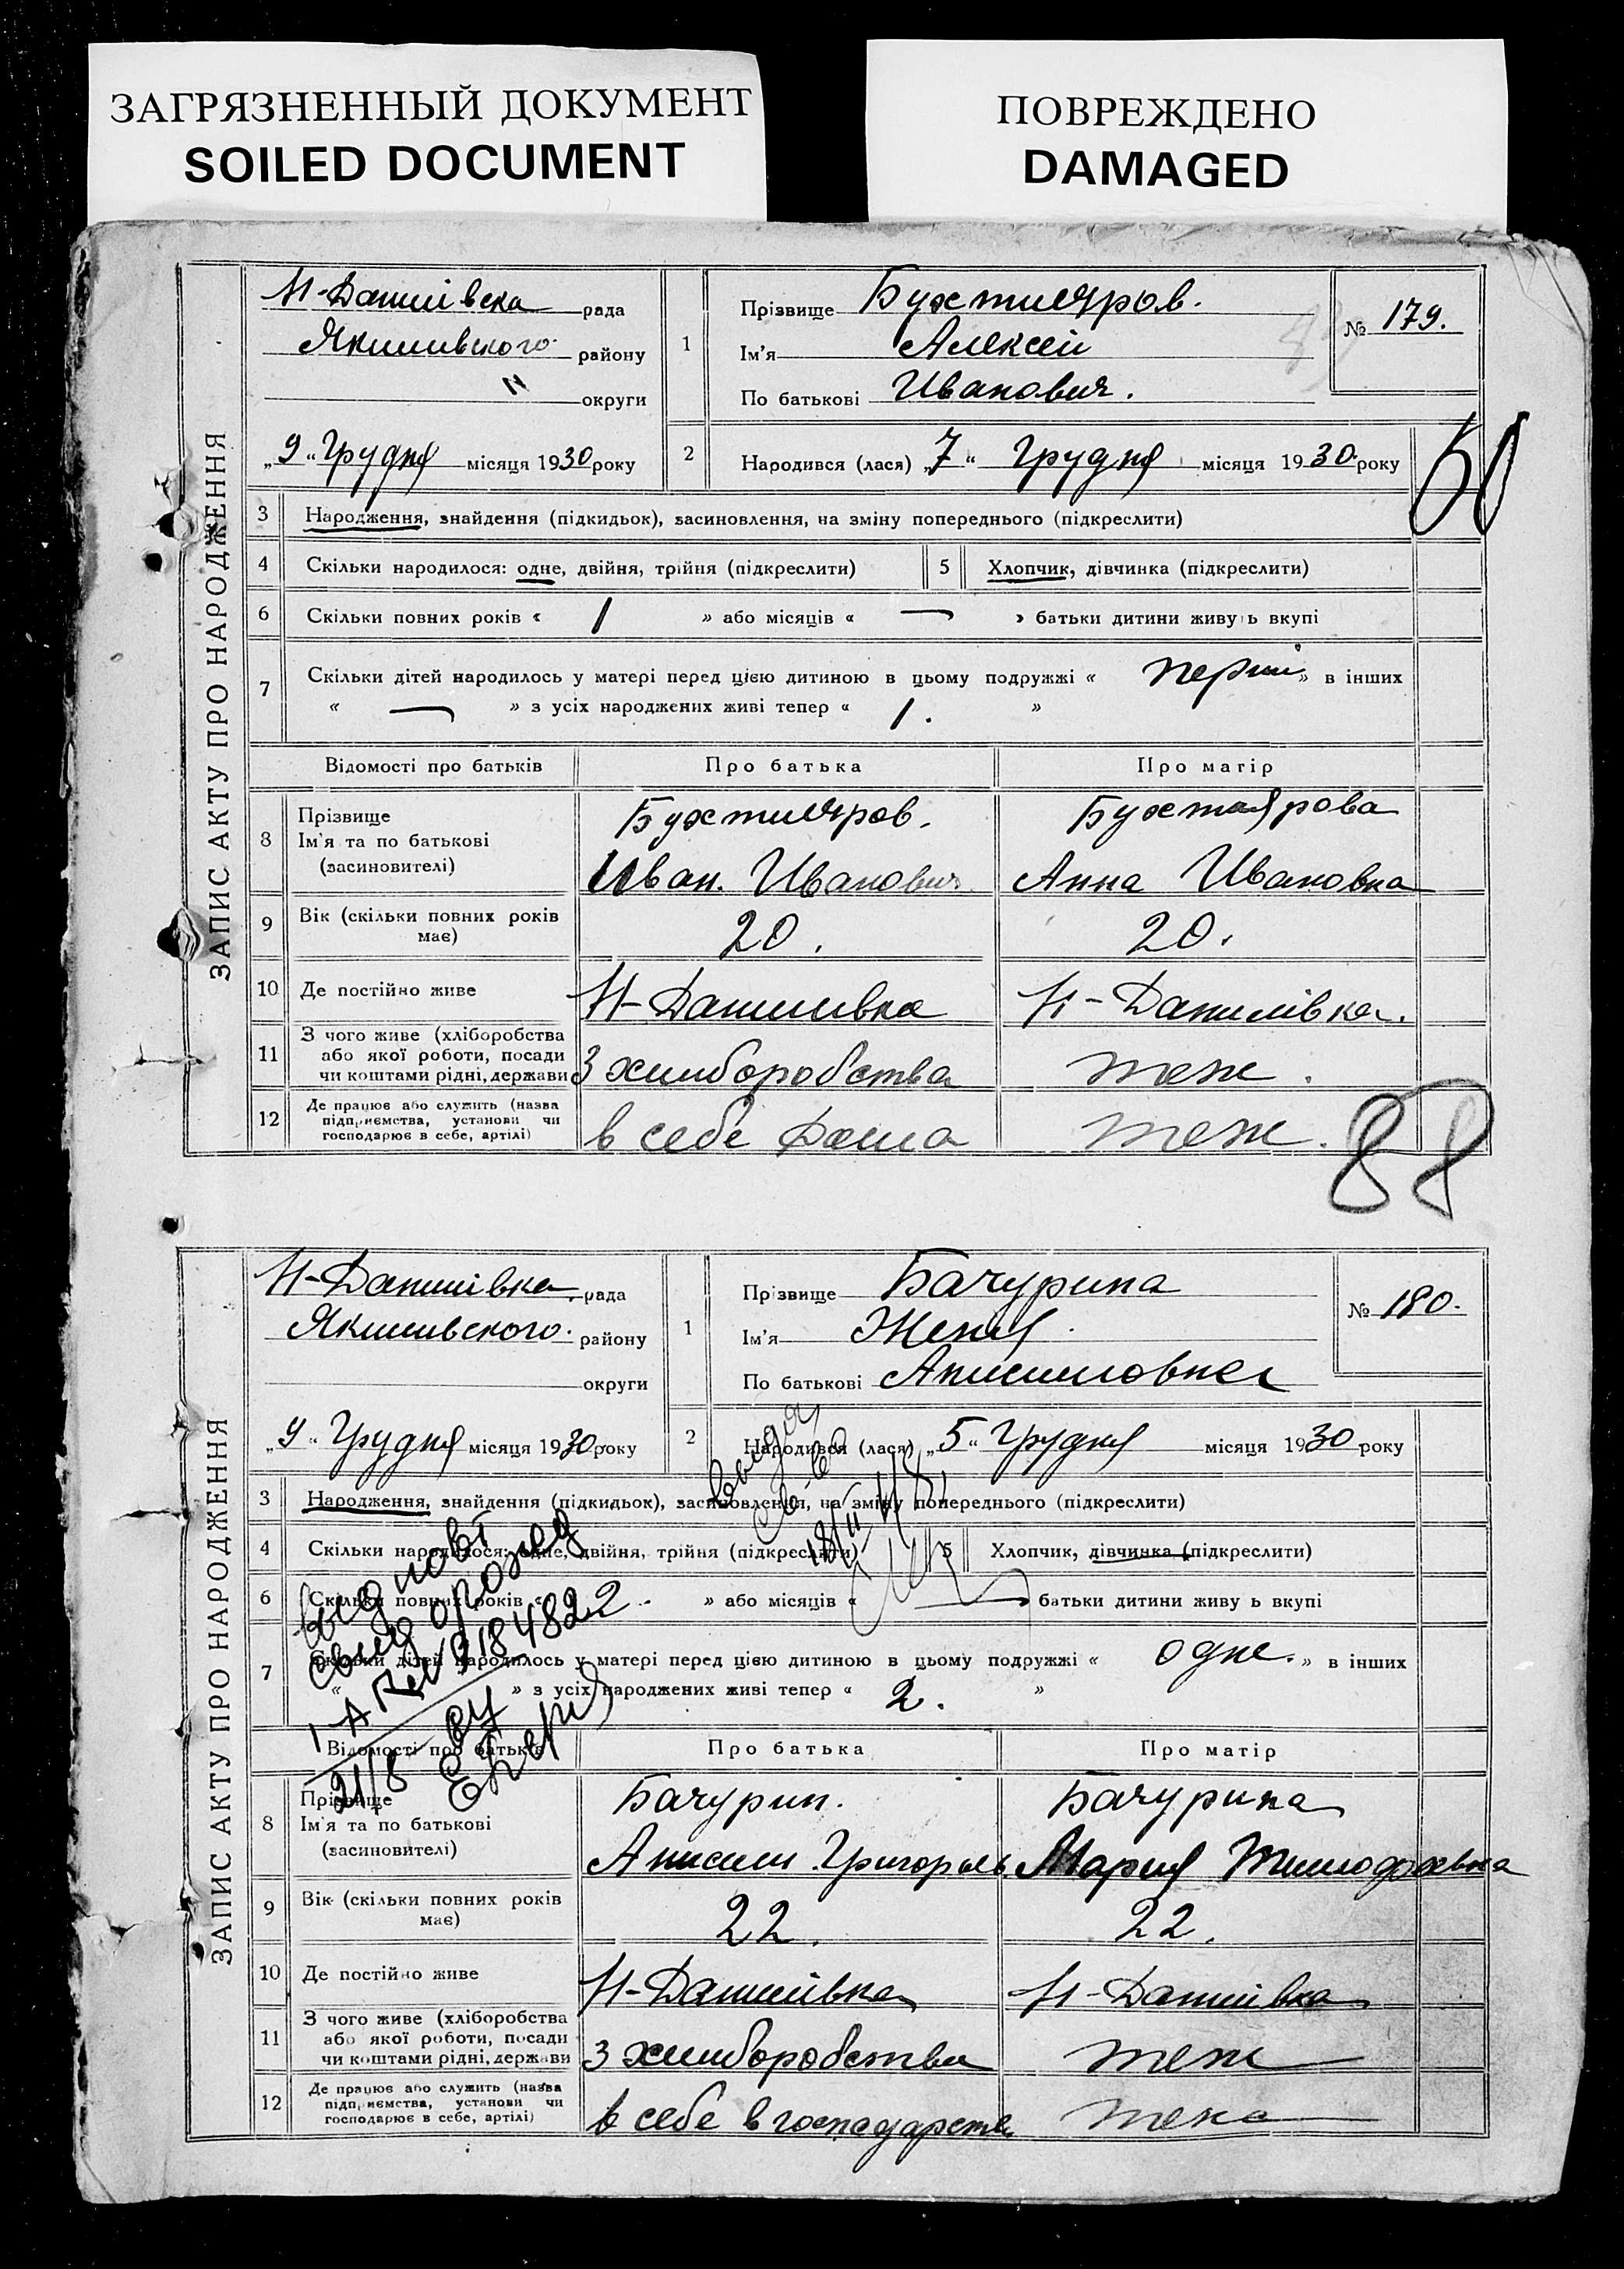 ЗАГРЯЗНЕННЫЙ ДОКУМЕНТ
SOILED DOCUMENT
ПОВРЕЖДЕНО
DAMAGED
ЗАПИС АКТУ ПРО НАРОДЖЕННЯ
Н-Данилівска рада
Якимивского району
округи
„9“ Грудня місяця 1930 року
1
Прізвище Бухтияров.
Ім'я Алексей
По батькові Иванович.
№ 179.
2 Народився (лася) „7“ Грудня місяця 1930 року
60
3 Народження, знайдення (підкидьок), засиновлення, на зміну попереднього (підкреслити)
4 Скільки народилося: одне, двійня, трійня (підкреслити) 5 Хлопчик, дівчинка (підкреслити)
6 Скільки повних років « 1 » або місяців « — » батьки дитини живуть вкупі
7 Скільки дітей народилось у матері перед цією дитиною в цьому подружжі « » в інших
« — » з усіх народжених живі тепер « 1. »
Відомості про батьків Про батька Про матір
8 Прізвище Бухтияров. Бухтаярова
Ім'я та по батькові
(засиновителі) Иван. Иванович Анна Ивановна
9 Вік (скільки повних років має) 20. 20.
10 Де постійно живе Н-Данилівка Н-Данилівка.
11 З чого живе (хліборобства
або якої роботи, посади
чи коштами рідні, держави З хлиборобства теж.
12 Де працює або служить (назва
підприємства, установи чи
господарює в себе, артілі) в себе дома теж.
88
ЗАПИС АКТУ ПРО НАРОДЖЕННЯ
Н-Данилівка рада
Якимивского. району
округи
„9“ Грудня місяця 1930 року
1
Прізвище Бачурина
Ім'я Женя.
По батькові Анисимовна
№ 180.
2 Народився (лася) „5“ Грудня місяця 1930 року
3 Народження, знайдення (підкидьок), засиновлення, на зміну попереднього (підкреслити)
4 Скільки народилося: одне, двійня, трійня (підкреслити) 5 Хлопчик, дівчинка (підкреслити)
6 Скільки повних років « 2. » або місяців « — батьки дитини живуть вкупі
7 Скільки дітей народилось у матері перед цією дитиною в цьому подружжі « одне. » в інших
« » з усіх народжених живі тепер « 2. »
Відомості про батьків Про батька Про матір
8 Прізвище Бачурин. Бачурина
Ім'я та по батькові
(засиновителі) Анисим Григорьев. Мария
9 Вік (скільки повних років має) 22. 22.
10 Де постійно живе Н-Данилівка Н-Данилівка
11 З чого живе (хліборобства
або якої роботи, посади
чи коштами рідні, держави З хлиборобства теж
12 Де працює або служить (назва
підприємства, установи чи
господарює в себе, артілі) в себе в господарстві